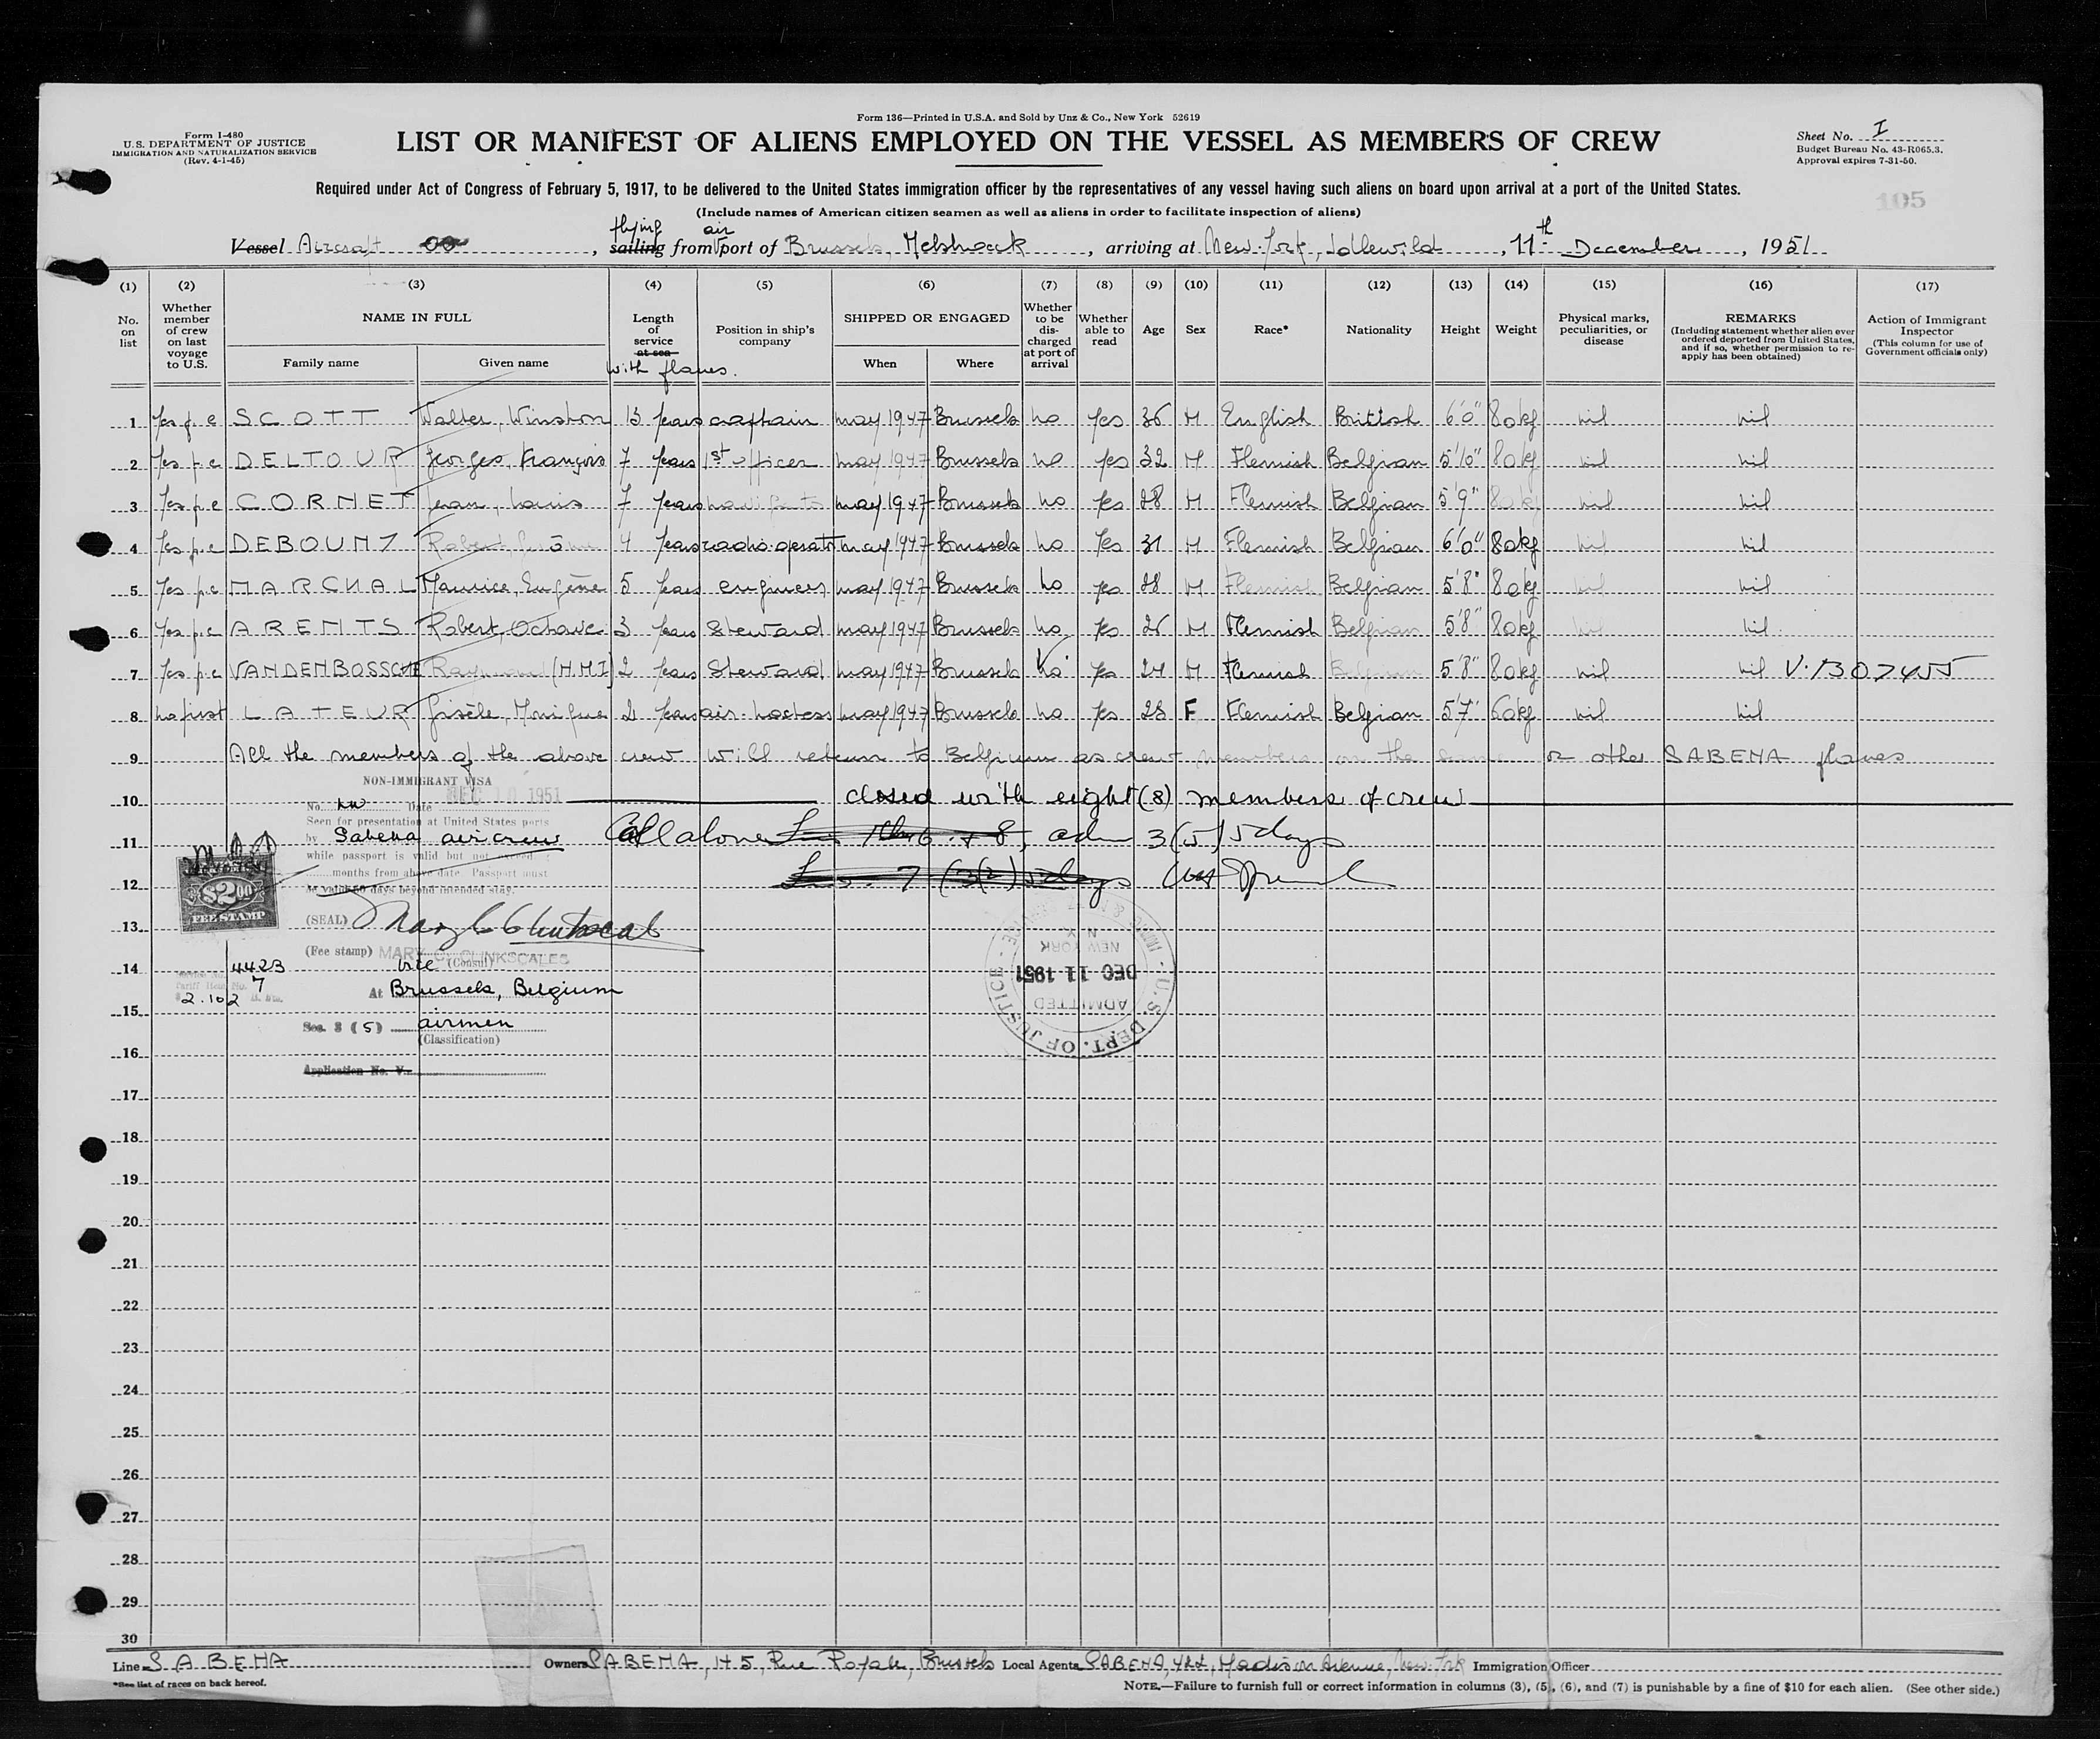 Form 136—Printed in U.S.A. and Sold by Unz & Co., New York 52619
Form I-480
U.S. DEPARTMENT OF JUSTICE
IMMIGRATION AND NATURALIZATION SERVICE
(Rev. 4-1-45)
LIST OR MANIFEST OF ALIENS EMPLOYED ON THE VESSEL AS MEMBERS OF CREW
Sheet No. I
Budget Bureau No. 43-R065.3.
Approval expires 7-31-50.
105
Required under Act of Congress of February 5, 1917, to be delivered to the United States immigration officer by the representatives of any vessel having such aliens on board upon arrival at a port of the United States.
(Include names of American citizen seamen as well as aliens in order to facilitate inspection of aliens)
flying air
Vessel Aircraft OO, sailing from port of Brussels, Melsbroeck, arriving at New-York, Idlewild, 11th December, 1951
(1) (2) (3) (4) (5) (6) (7) (8) (9) (10) (11) (12) (13) (14) (15) (16) (17)
No. on list
Whether member of crew on last voyage to U.S.
NAME IN FULL
Family name Given name
Length of service at sea with planes.
Position in ship's company
SHIPPED OR ENGAGED
When Where
Whether to be discharged at port of arrival
Whether able to read
Age Sex Race* Nationality Height Weight
Physical marks, peculiarities, or disease
REMARKS
(Including statement whether alien ever ordered deported from United States, and if so, whether permission to re-apply has been obtained)
Action of Immigrant Inspector
(This column for use of Government officials only)
1 Yes p.c SCOTT Walter, Winston 13 years captain may 1947 Brussels no yes 36 M English British 6'0" 80kg nil nil
2 Yes p.c DELTOUR Georges, François 7 years 1st officer may 1947 Brussels no yes 32 M Flemish Belgian 5'10" 80kg nil nil
3 Yes p.c CORNET Jean, Louis 7 years navigator may 1947 Brussels no yes 28 M Flemish Belgian 5'9" 80kg nil nil
4 Yes p.c DEBOUNY Robert 4 years radio-operator may 1947 Brussels no yes 31 M Flemish Belgian 6'0" 80kg nil nil
5 Yes p.c MARCHAL Maurice, Eugène 5 years engineer may 1947 Brussels no yes 28 M Flemish Belgian 5'8" 80kg nil nil
6 Yes p.c ARENTS Robert, Octave 3 years Steward may 1947 Brussels no yes 26 M Flemish Belgian 5'8" 80kg nil nil
7 Yes p.c VANDENBOSSCHE Raymond (H.M.I) 2 years Steward may 1947 Brussels no yes 24 M Flemish Belgian 5'8" 80kg nil nil V.1307455
8 no first LATEUR Gisèle, Monique 2 years air-hostess may 1947 Brussels no yes 28 F Flemish Belgian 5'7" 60kg nil nil
9 All the members of the above crew will return to Belgium as crew members on the same or other SABENA planes
10 closed with eight (8) members of crew
11 All alone 1 to 6 + 8, adm 3(5) 5 days
12 7 (3(2)) 5 days
13
14
15
16
17
18
19
20
21
22
23
24
25
26
27
28
29
30
NON-IMMIGRANT VISA
No. Date DEC 10 1951
Seen for presentation at United States ports
by Sabena aircrew
while passport is valid but not exceed
months from above date. Passport must
be valid 60 days beyond intended stay.
$2.00
FEE STAMP
(SEAL) Mary C Clinkscales
(Fee stamp) MARY C. CLINKSCALES
vice (Consul)
At Brussels, Belgium
Sec. 3 (5) airmen
(Classification)
Application No. V.
4423
Tariff Item No. 7
U.S. DEPT. OF JUSTICE
ADMITTED
DEC 11 1951
NEW YORK
N.Y.
Line SABENA Owners SABENA, 145, Rue Royale, Brussels Local Agents SABENA, 422, Madison Avenue, New-York Immigration Officer
*See list of races on back hereof.
NOTE.—Failure to furnish full or correct information in columns (3), (5), (6), and (7) is punishable by a fine of $10 for each alien. (See other side.)